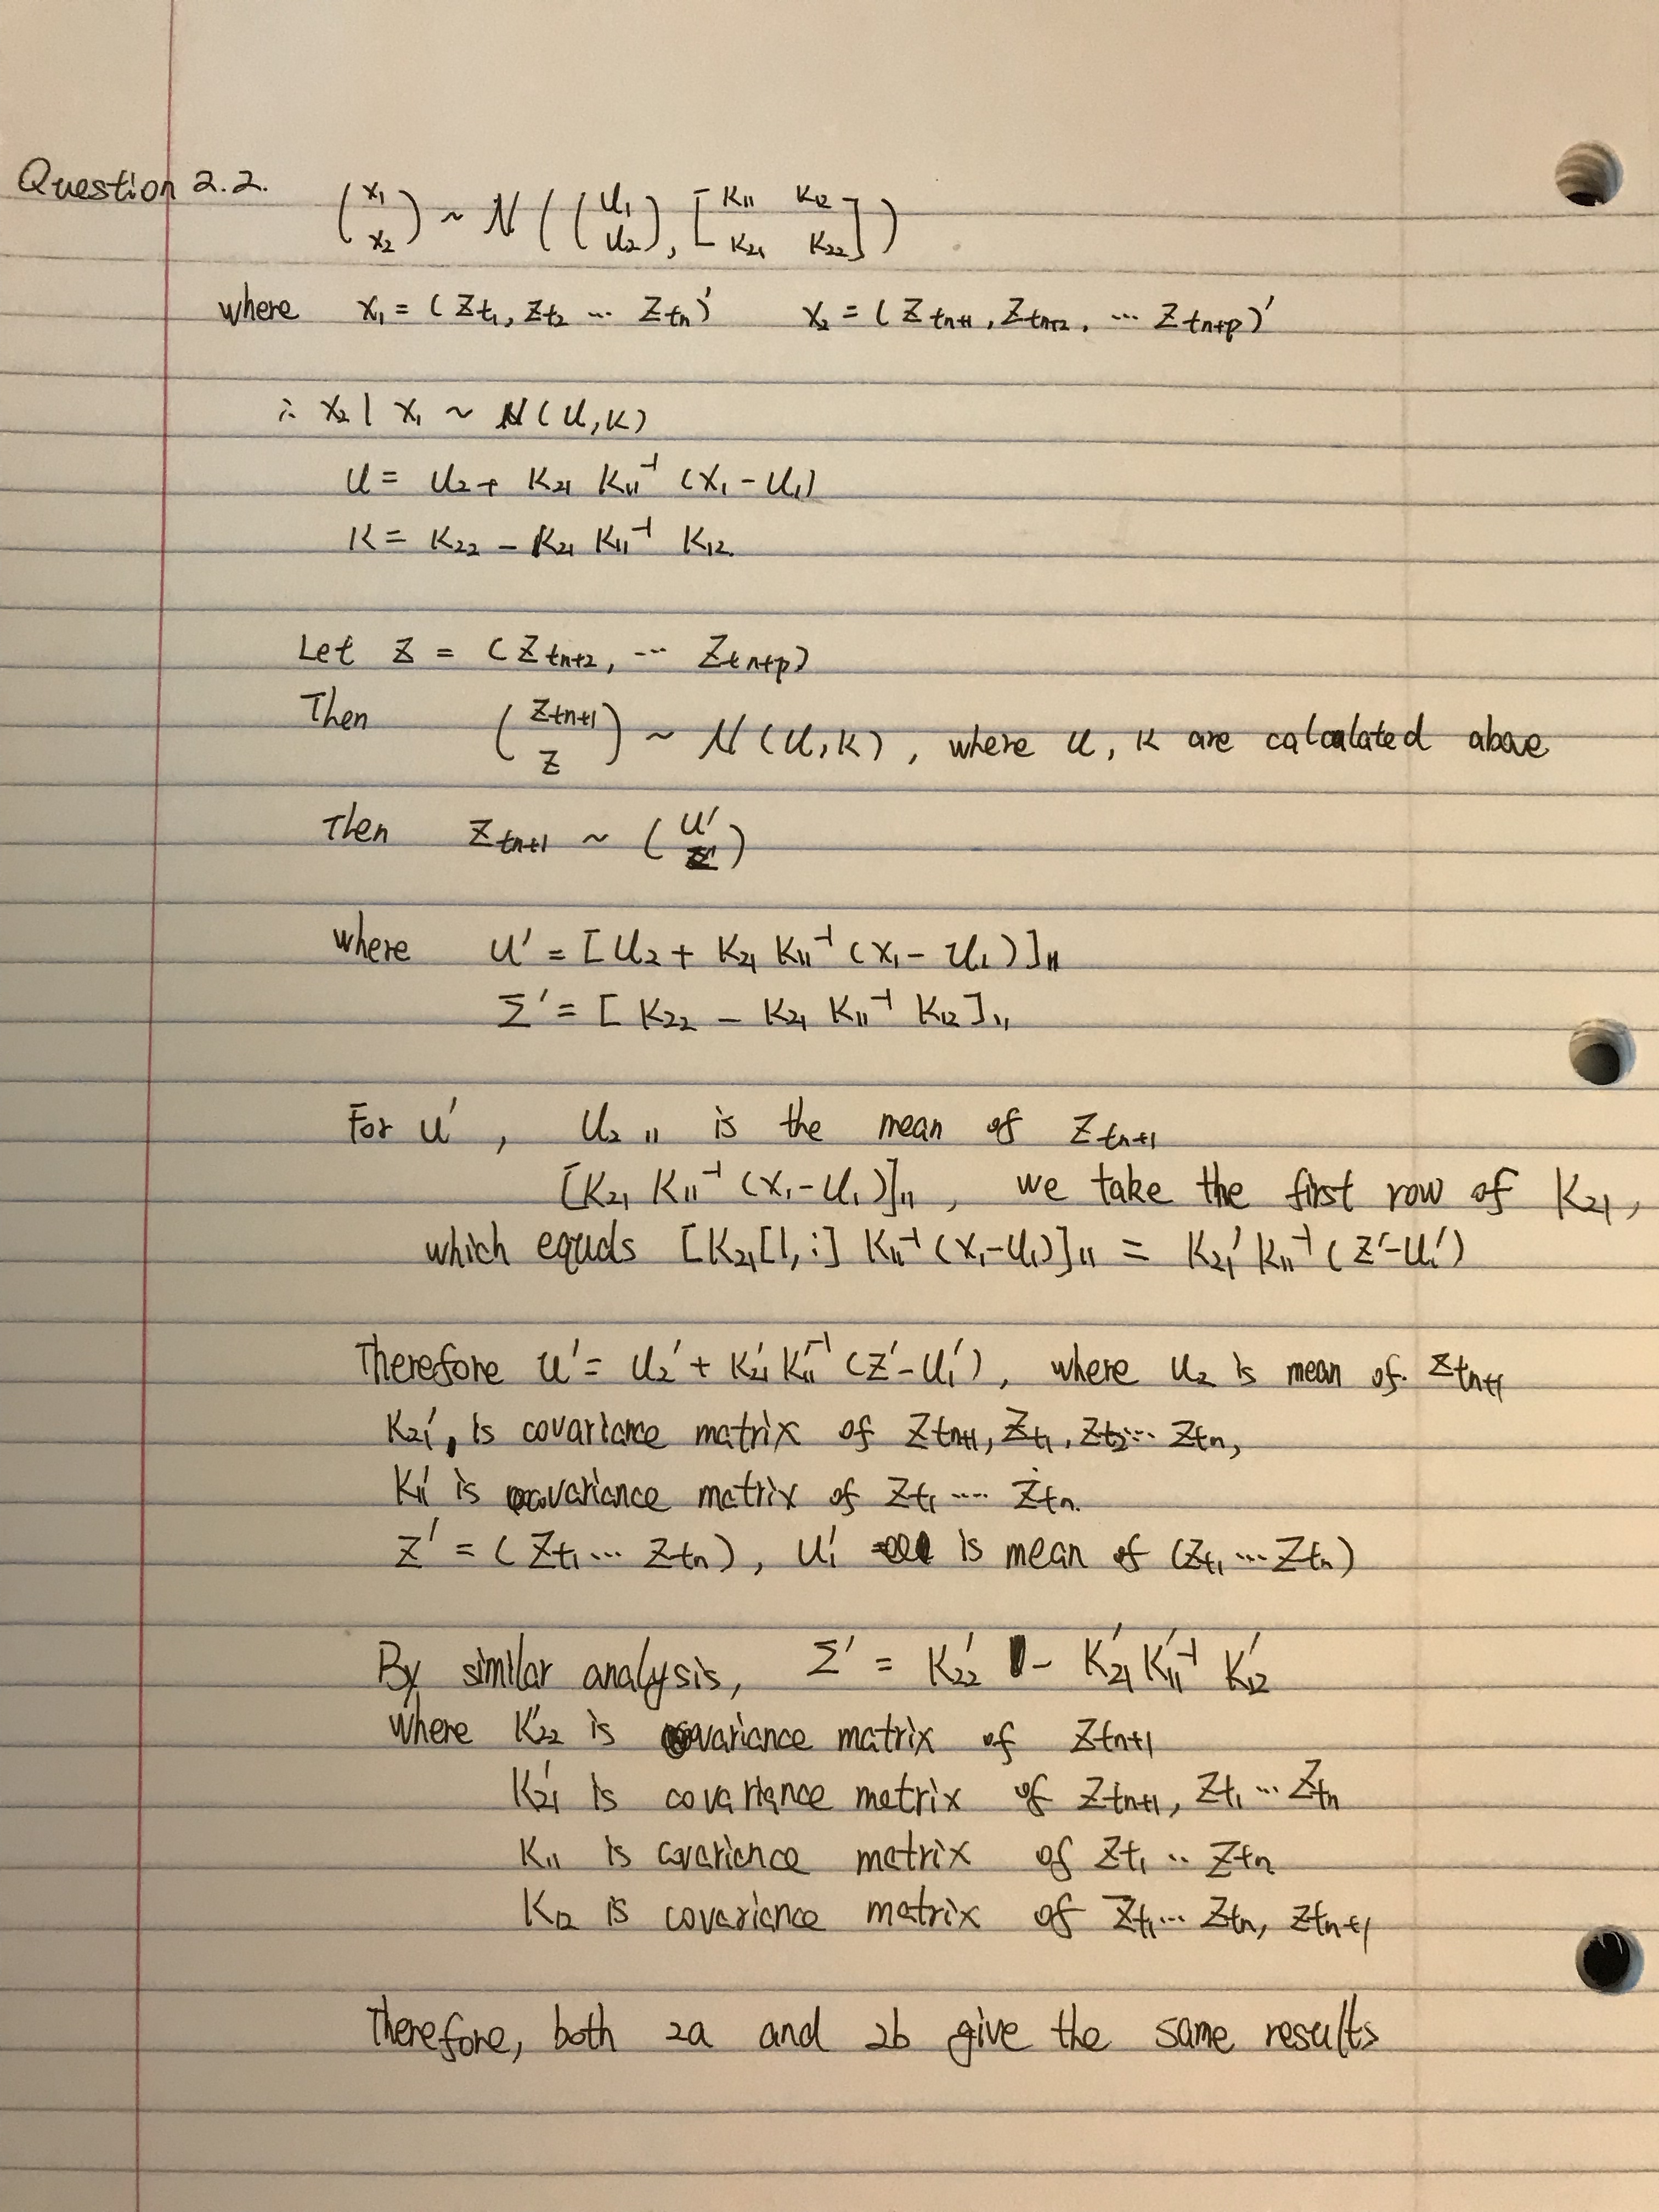 Question 2.2.
(x₁ x₂) ~ N((U₁ U₂), [K₁₁ K₁₂ K₂₁ K₂₂])
where x₁ = (Zt₁, Zt₂ ... Ztₙ)' x₂ = (Ztₙ₊₁, Ztₙ₊₂, ... Ztₙ₊ₚ)'
∴ x₂ | x₁ ~ N(U, K)
U = U₂ + K₂₁ K₁₁⁻¹ (x₁ - U₁)
K = K₂₂ - K₂₁ K₁₁⁻¹ K₁₂
Let Z = (Ztₙ₊₂, ... Ztₙ₊ₚ)
Then (Ztₙ₊₁ Z) ~ N(U, K), where U, K are calculated above
Then Ztₙ₊₁ ~ (U' Σ')
where U' = [U₂ + K₂₁ K₁₁⁻¹ (x₁ - U₁)]₁₁
Σ' = [K₂₂ - K₂₁ K₁₁⁻¹ K₁₂]₁₁
For U', U₂ ₁₁ is the mean of Ztₙ₊₁
[K₂₁ K₁₁⁻¹ (x₁ - U₁)]₁₁, we take the first row of K₂₁,
which equals [K₂₁[1, :] K₁₁⁻¹ (x₁ - U₁)]₁₁ = K₂₁' K₁₁⁻¹ (Z' - U₁')
Therefore U' = U₂' + K₂₁' K₁₁'⁻¹ (Z' - U₁'), where U₂ is mean of Ztₙ₊₁
K₂₁', is covariance matrix of Ztₙ₊₁, Zt₁, Zt₂ ... Ztₙ,
K₁₁' is covariance matrix of Zt₁ .... Ztₙ.
Z' = (Zt₁ ... Ztₙ), U₁' is mean of (Zt₁ ... Ztₙ)
By similar analysis, Σ' = K₂₂' - K₂₁' K₁₁'⁻¹ K₁₂'
where K₂₂' is covariance matrix of Ztₙ₊₁
K₂₁' is covariance matrix of Ztₙ₊₁, Zt₁ ... Ztₙ
K₁₁ is covariance matrix of Zt₁ .. Ztₙ
K₁₂ is covariance matrix of Zt₁ ... Ztₙ, Ztₙ₊₁
Therefore, both 2a and 2b give the same results